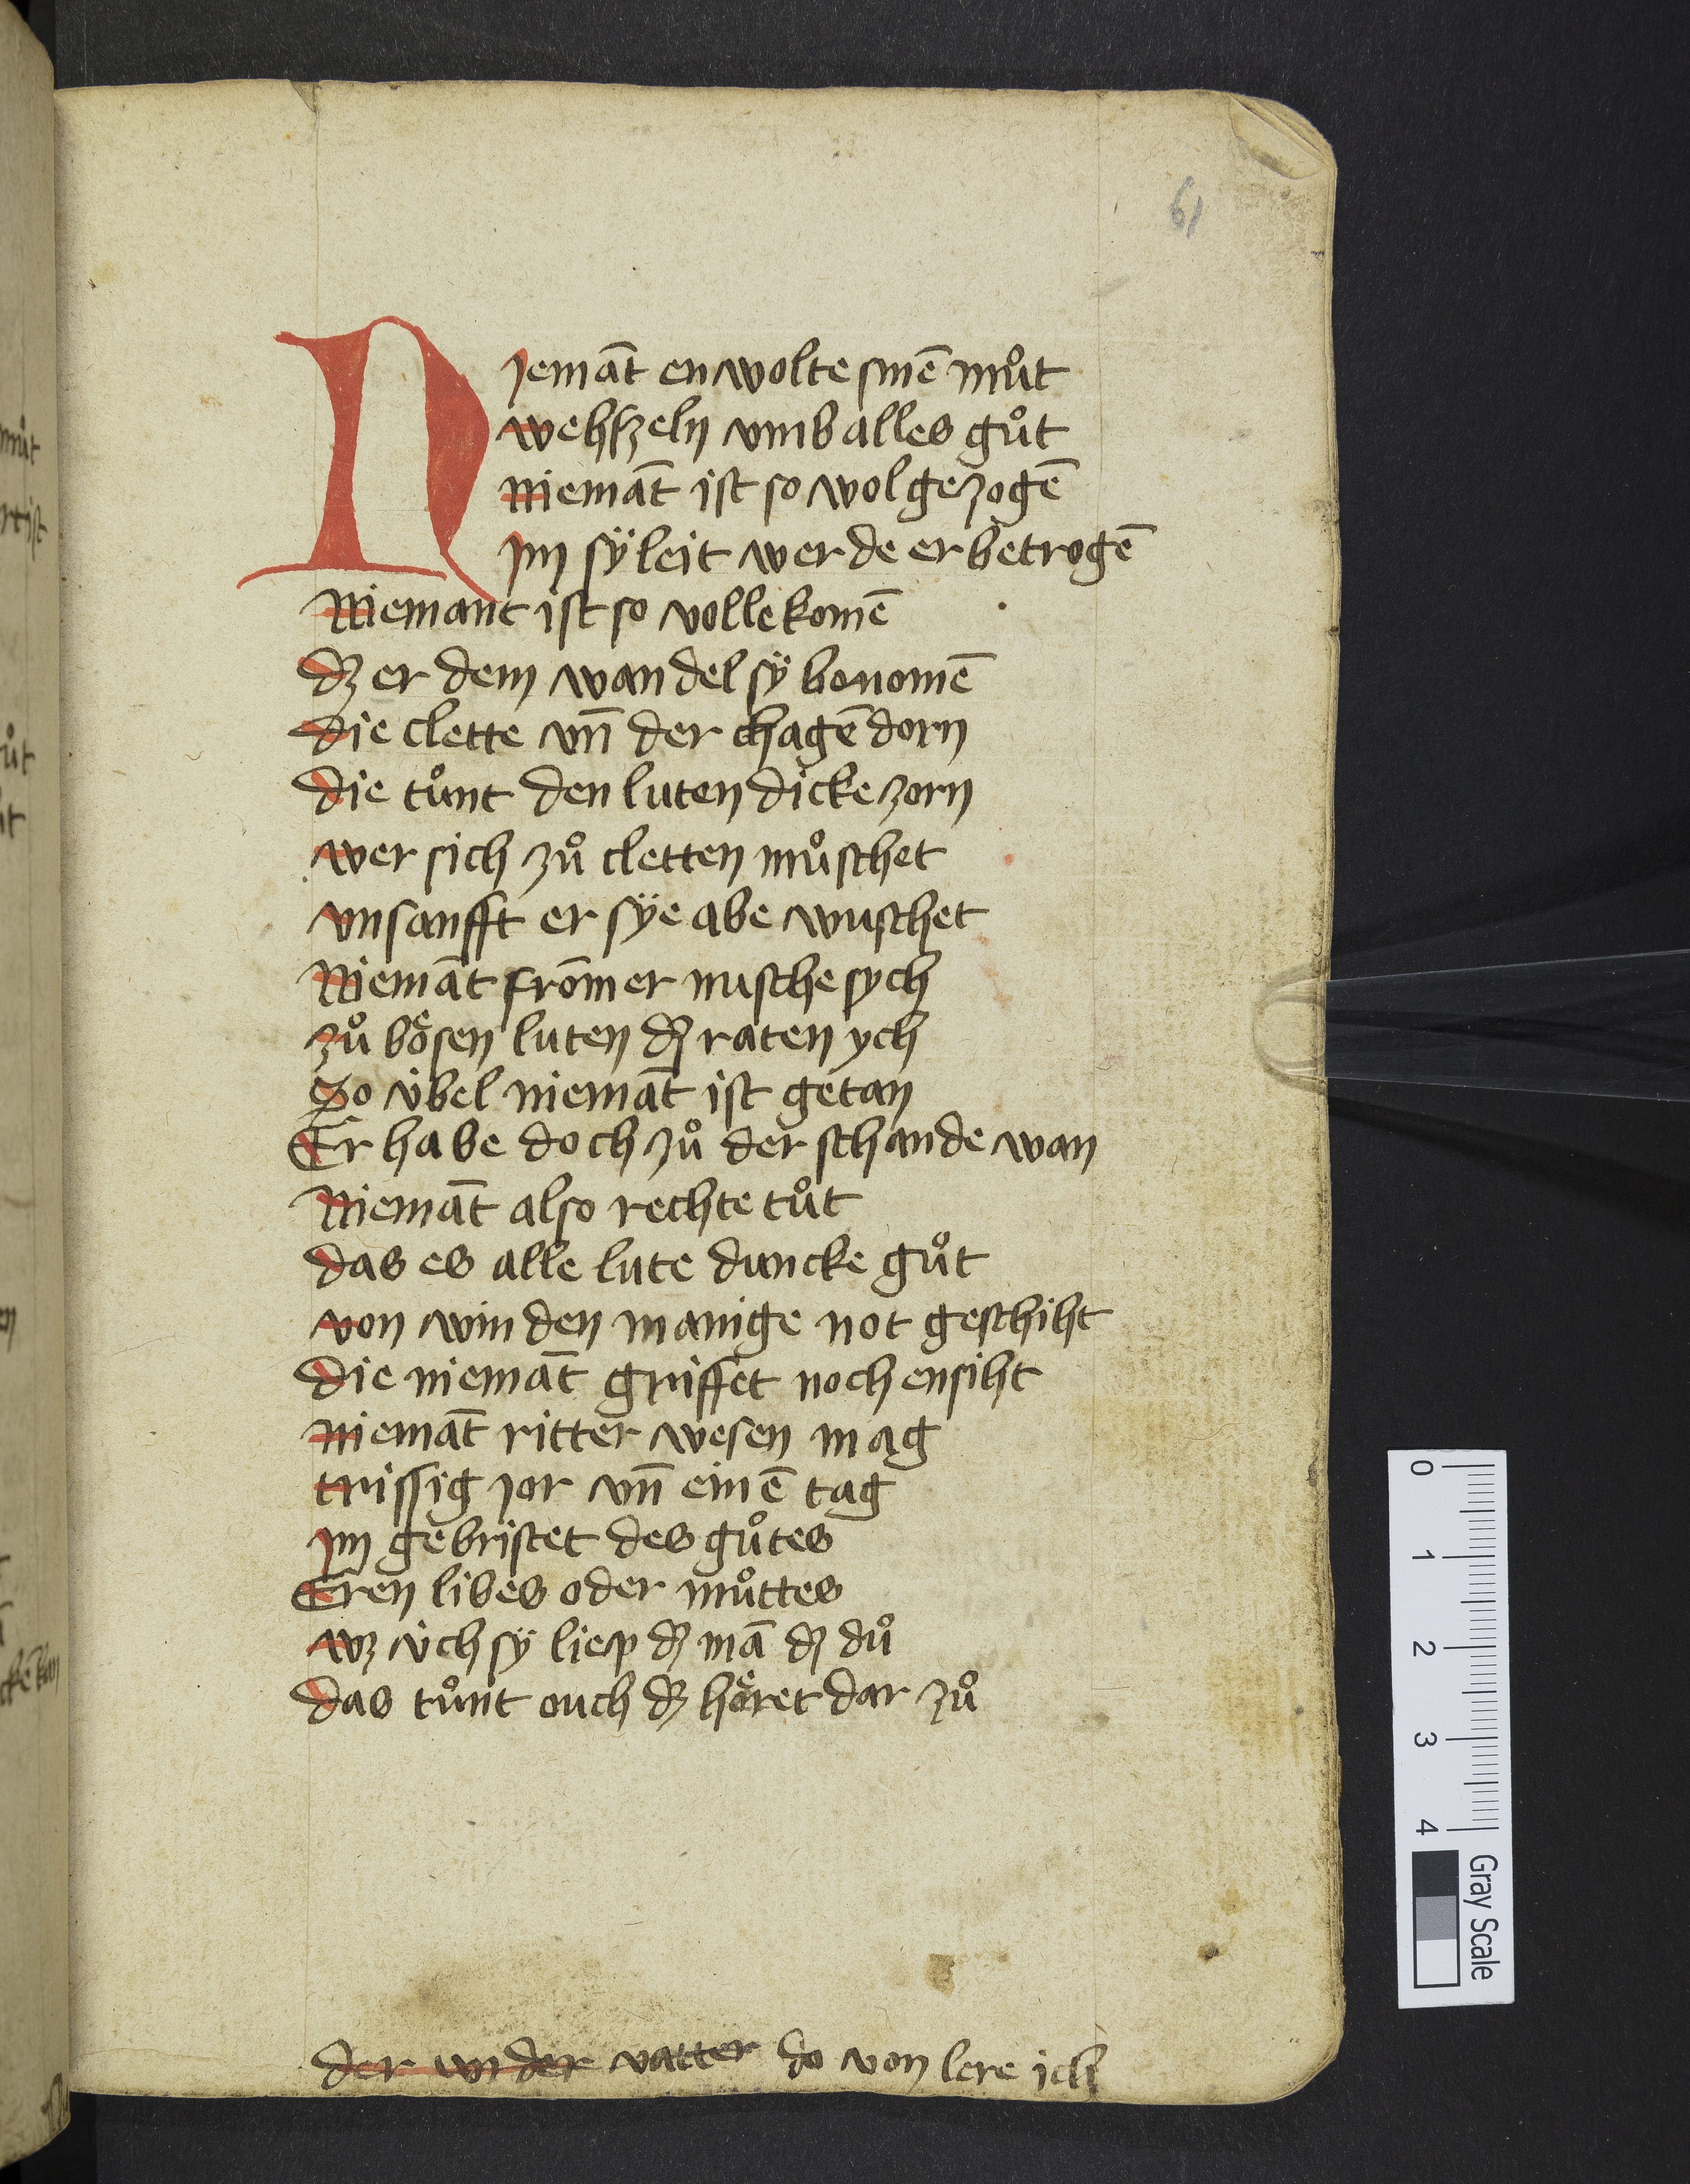 61
Niemāt en wolte sinē můt
wehſzeln vmb alles gůt
Niemāt ist so wol gezogē
Im sÿ leit werde er betrogē
Niemant ist so vollekomē
dz er dem wandel sÿ bonomē
die clette vn̄ der chagē dorn
die tůnt den luten dicke zorn
wer sich zů cletten můschet
vnsanfft er sÿe abe wuschet
Niemāt fromer musche sych
zů boͤsen luten dz raten ych
So v́bel niemāt ist getan
Er habe doch zů der schande wan
Niemāt also rechte tůt
das es alle lute duncke gůt
von winden manige not geschiht
die niemāt griffet noch ensiht
niemāt ritter wesen mag
trissig jor vn̄ einē tag
Im gebristet des gůtes
Eren libes oder můttes
wz v́ch sÿ liep dz mā dz dů
das tůnt ouch dz hoͤret dar zů
der vnder vatter do von lere ich
0 1 2 3 4
Gray Scale